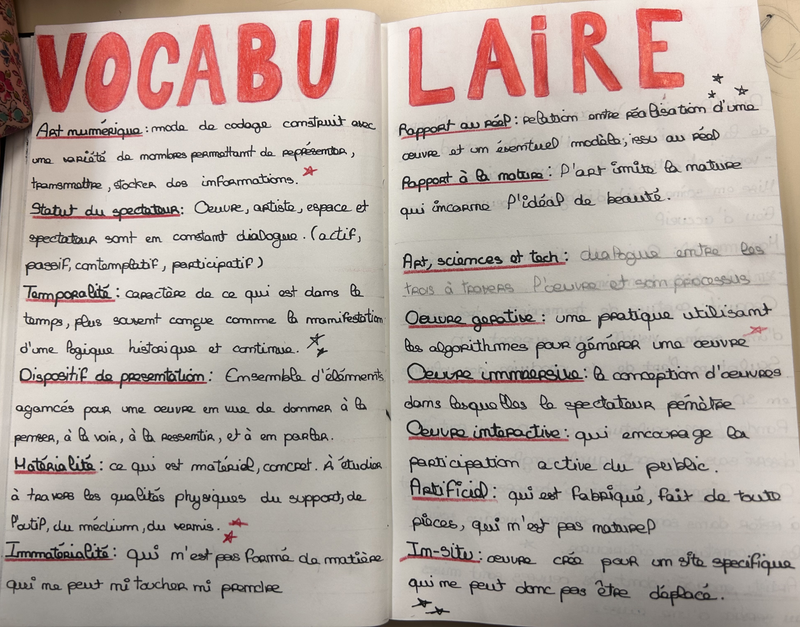 VOCABU
Art numérique : mode de codage construit avec
une variété de nombres permettant de représenter,
transmettre, stocker des informations.
Statut du spectateur : Oeuvre, artiste, espace et
spectateur sont en constant dialogue. (actif,
passif, contemplatif, participatif)
Temporalité : caractère de ce qui est dans le
temps, plus souvent conçue comme la manifestation
d'une logique historique et continue.
Dispositif de presentation : Ensemble d'éléments
agancés pour une oeuvre en vue de donner à la
penser, à la voir, à la ressentir, et à en parler.
Matérialité : ce qui est matériel, concret. À étudier
à travers les qualités physiques du support, de
l'outil, du médium, du vernis.
Immatérialité : qui n'est pas formé de matière
qui ne peut ni toucher ni prendre
LAIRE
Rapport au réel : relation entre réalisation d'une
œuvre et un éventuel modèle, issu au réel
Rapport à la nature : l'art imite la nature
qui incarne l'idéal de beauté.
Art, sciences et tech : dialogue entre les
trois à travers l'oeuvre et son processus
Oeuvre gerative : une pratique utilisant
les algorithmes pour générer une œuvre
Oeuvre immersive : la conception d'oeuvres
dans lesquelles le spectateur pénètre
Oeuvre interactive : qui encourage la
participation active du public.
Artificiel : qui est fabriqué, fait de toute
pièces, qui n'est pas naturel
In-situ : œuvre crée pour un site specifique
qui ne peut donc pas être déplacé.